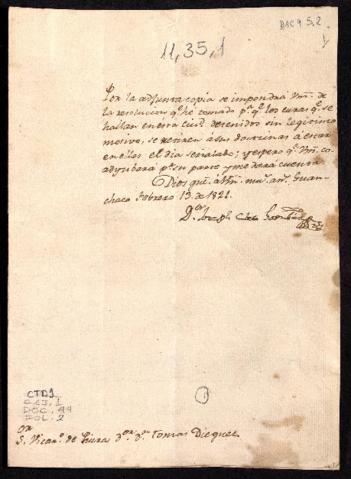 D1C9 5,2
11,35,1
Por la adjunta copia se impondrá Vm. de
la resolucion q.e hé tomado p.a q.e los curas q.e se
hallan en esa Ciud. detenidos sin legitimo
motivo, se retiren á sus doctrinas á estar
en ellas el dia señalado; y espero q.e Vm. co-
adyubará p.r su parte y me dará cuenta.
Dios gu.e á Vm. mu.s an.s Guan-
chaco Febrero 13 de 1821.
CTD1
DOC. 44
FOL. 2
1
S. Vicar.o de Piura D.or D.n Tomas Dieguez